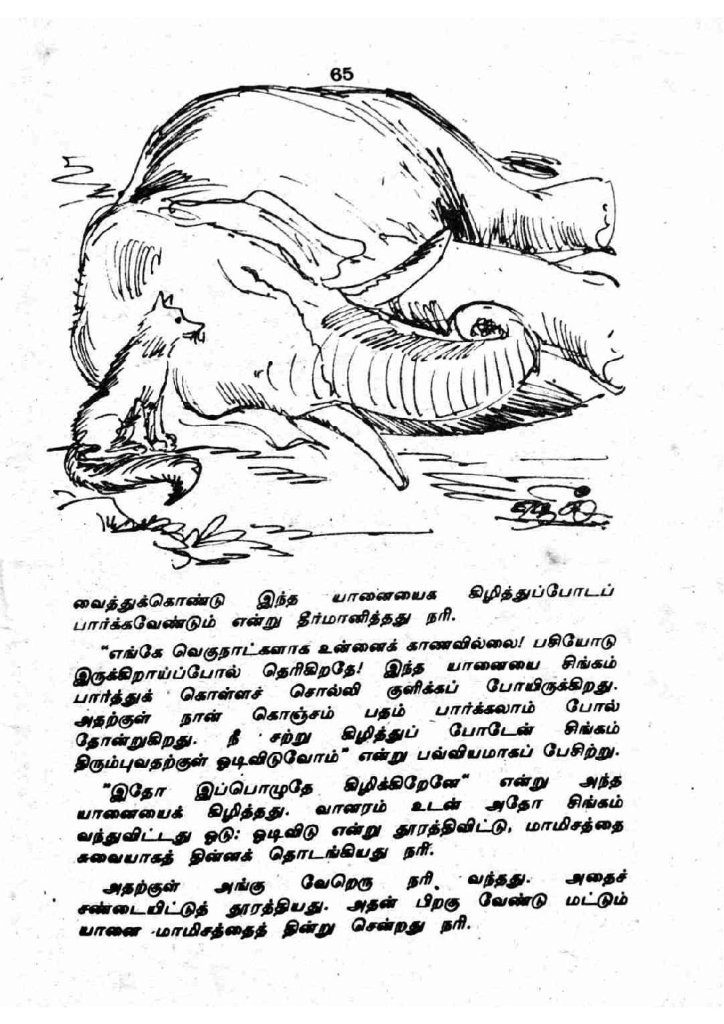 65
வைத்துக்கொண்டு இந்த யானையைக கிழித்துப்போடப்
பார்க்கவேண்டும் என்று தீர்மானித்தது நரி.
"எங்கே வெகுநாட்களாக உன்னைக் காணவில்லை! பசியோடு
இருக்கிறாய்ப்போல் தெரிகிறதே! இந்த யானையை சிங்கம்
பார்த்துக் கொள்ளச் சொல்லி குளிக்கப் போயிருக்கிறது.
அதற்குள் நான் கொஞ்சம் பதம் பார்க்கலாம் போல்
தோன்றுகிறது. நீ சற்று கிழித்துப் போடேன் சிங்கம்
திரும்புவதற்குள் ஓடிவிடுவோம்" என்று பவ்வியமாகப் பேசிற்று.
"இதோ இப்பொழுதே கிழிக்கிறேனே" என்று அந்த
யானையைக் கிழித்தது. வானரம் உடன் அதோ சிங்கம்
வந்துவிட்டது ஓடு: ஓடிவிடு என்று தூரத்திவிட்டு, மாமிசத்தை
சுவையாகத் தின்னக் தொடங்கியது நரி.
அதற்குள் அங்கு வேறெரு நரி வந்தது. அதைச்
சண்டையிட்டுத் தூரத்தியது. அதன் பிறகு வேண்டு மட்டும்
யானை மாமிசத்தைத் தின்று சென்றது நரி.